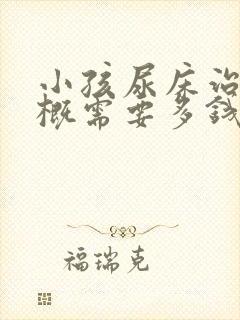 小孩尿床治
概需要多钱
福瑞克